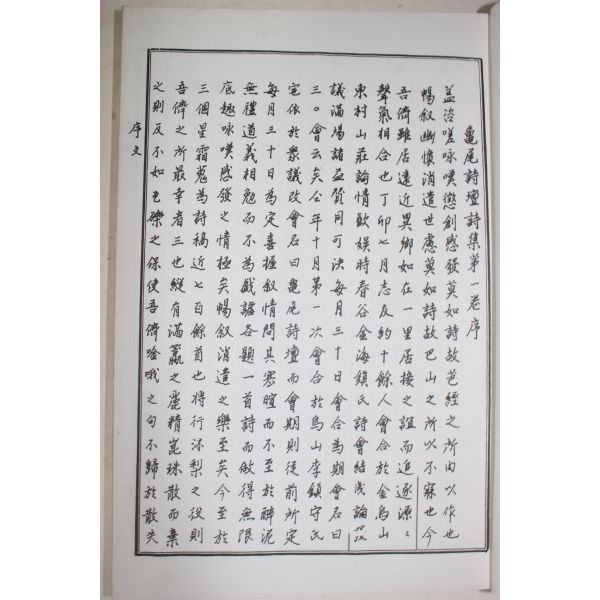 龜尾詩壇詩集第一卷序
盖咨嗟咏嘆懲創感發莫如詩故葩經之所由以作也
暢叙幽懷消遣世慮莫如詩故巴山之所以不寐也今
吾儕雖居遠近異鄉如在一里居接之誼而追逐源〻
聲氣相合也丁卯七月志友約十餘人會合於金烏山
東村山莊論情歡娛時春谷金海鎭氏詩會結成論
議滿場諸益賛同可決每月三十日會合為期會名曰
三○會云矣仝年十月第一次會合於烏山李鎮守氏
宅依於衆議改會名曰龜尾詩壇而會期則從前所定
每月三十日為定喜握叙情問其寒暄而不至於醉泥
無禮道義相勉而不為戲謔各題一首詩而做得無限
底趣咏嘆感發之情極矣暢叙消遣之樂至矣今至於
三個星霜蒐為詩稿近七百餘首也將行沗梨之役則
吾儕之所最幸者三也縱有滿籝之麗精崑珠散而棄
之則反不如瓦礫之保使吾儕唫哦之句不歸於散失
序文